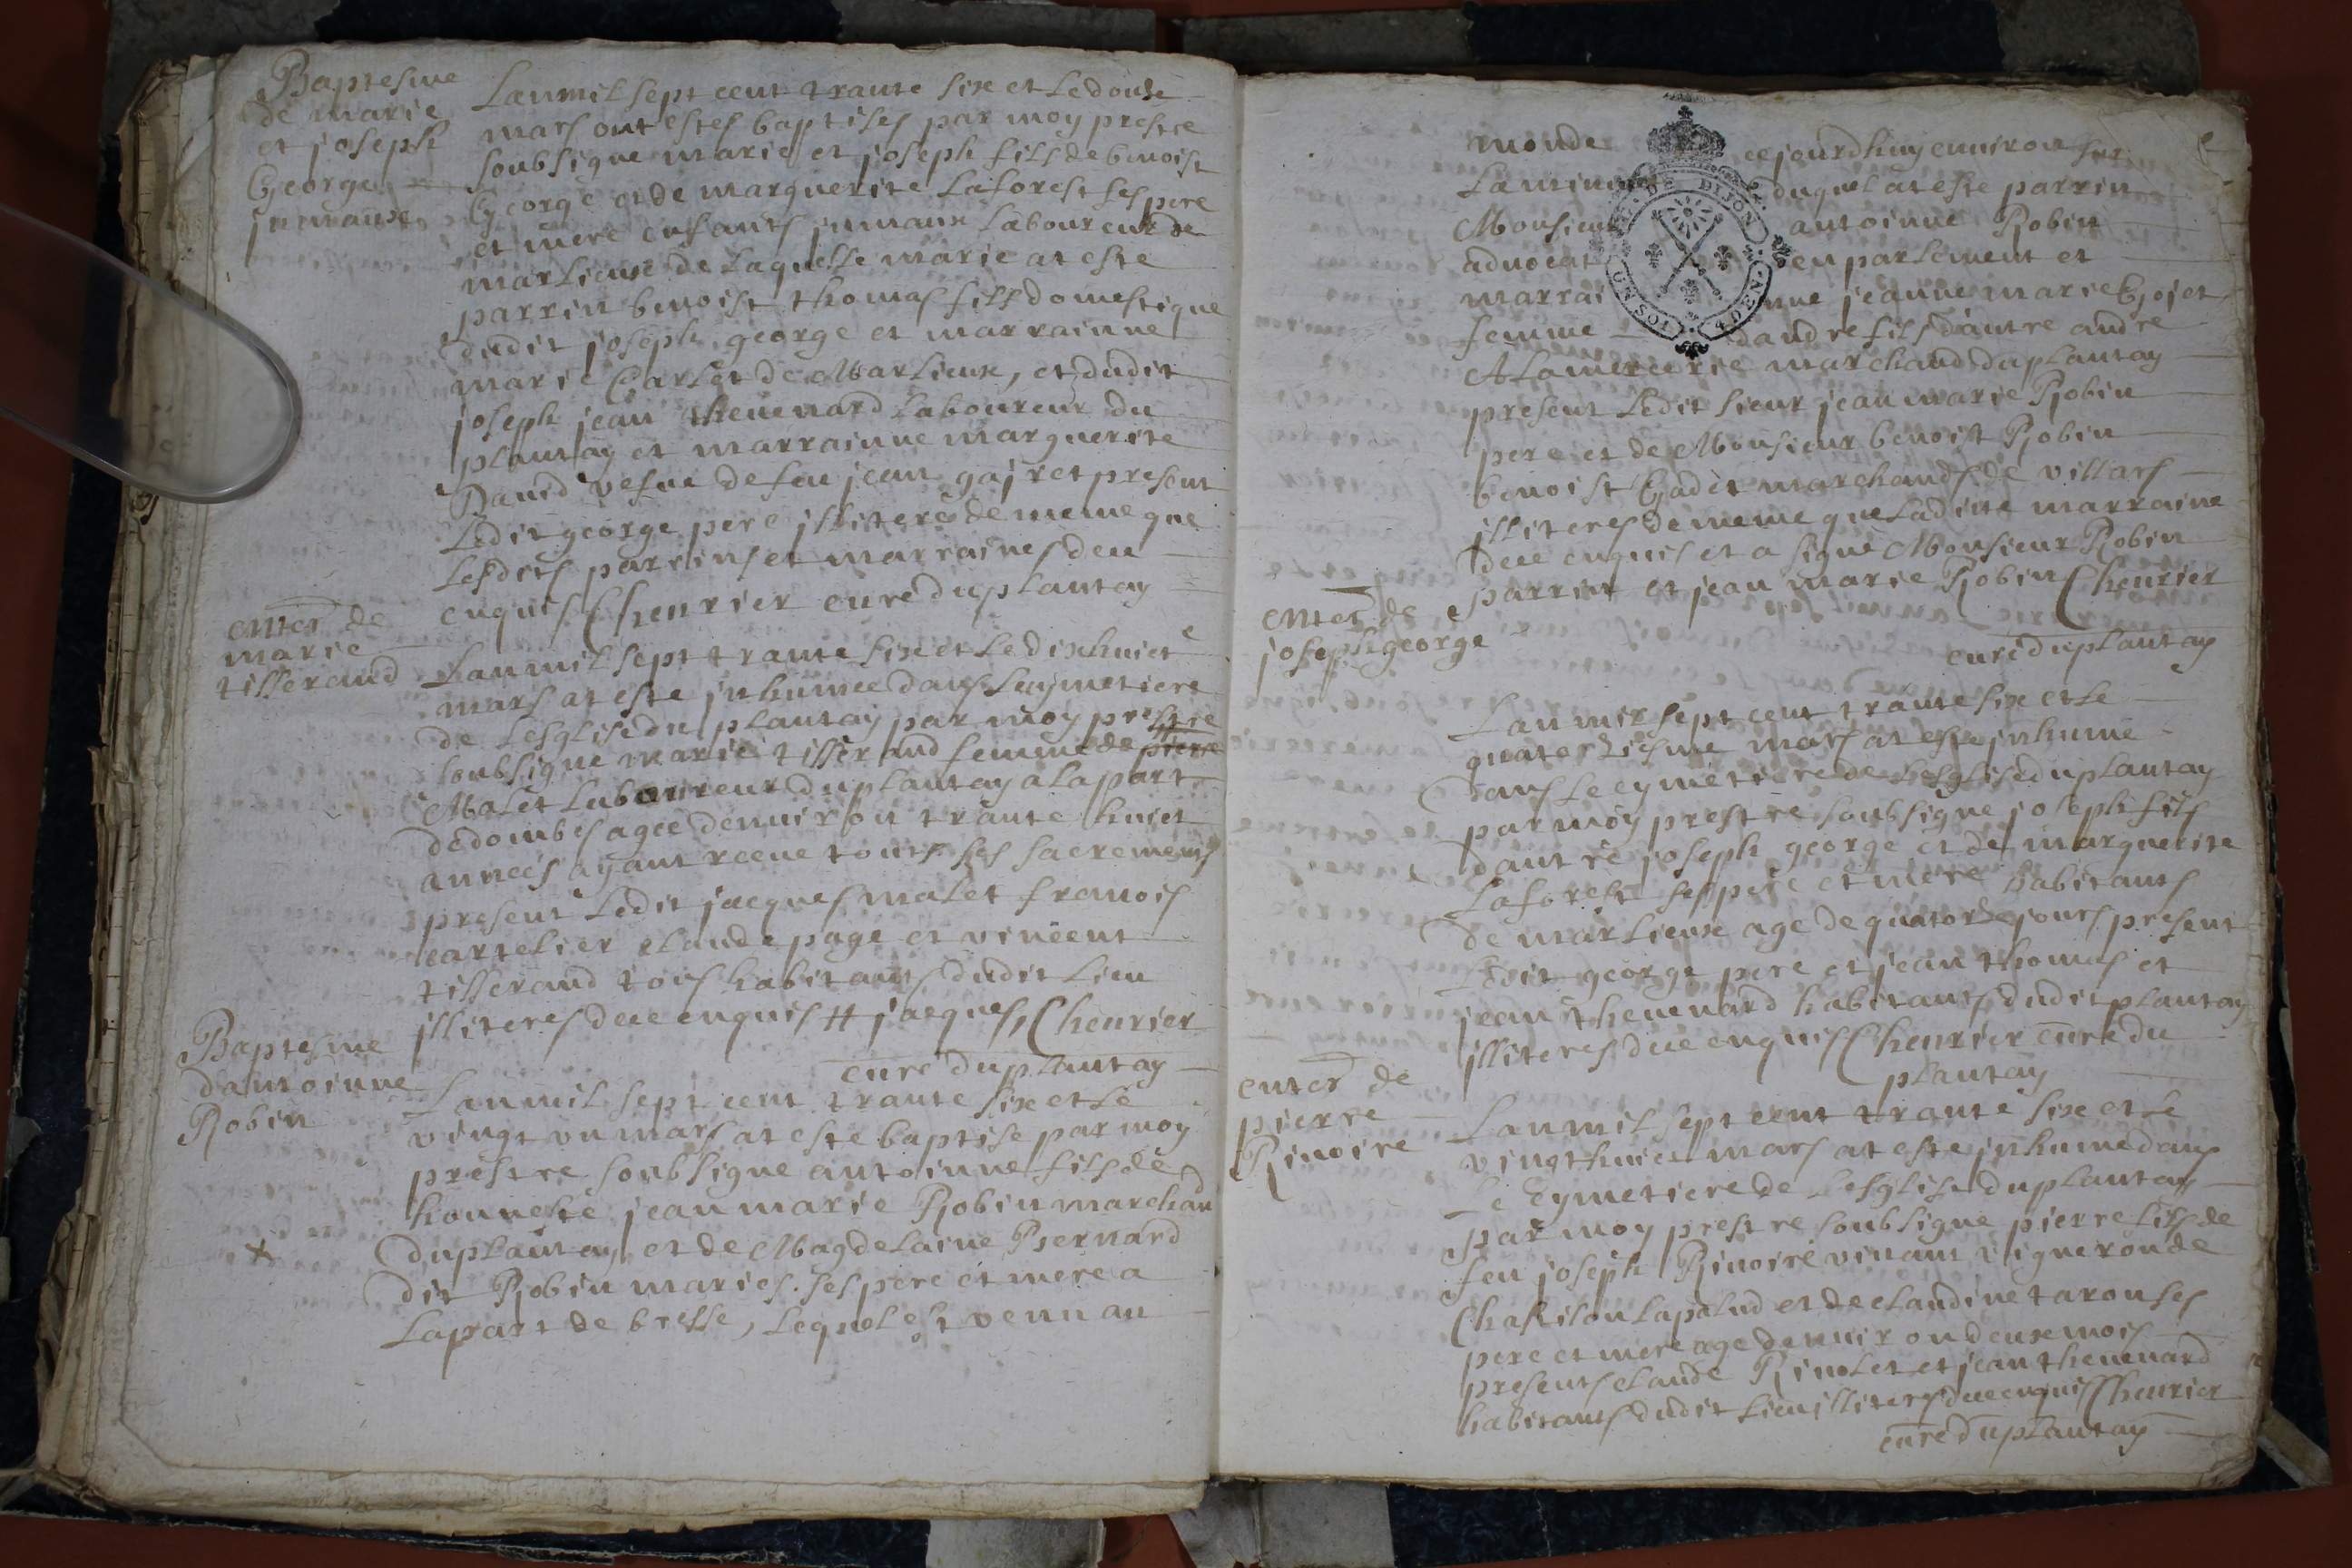 Baptesme
de marie
et joseph
George
jumaux
Lanmil sept cent trante six et le douse
mars ont estes baptises par moy prestre
soubsigne marie et joseph fils de benoist
George et de marguerite Laforest ses pere
et mere enfants jumaux laboureur de
marlieux de laquelle marie at este
parrin benoist thomas fils domestique
dudit joseph george et marrainne
marie Carlet de Marlieux, et dudit
joseph jean thevenard laboureur du
plantay et marrainne marguerite
David vefue de feu jean gajret present
Ledit george pere illitere de meme que
lesdits parrins et marraines deu
enquis Chevrier cure du plantay
enter de
marie
tisserand
Lanmil sept trante six et le dixhuict
mars at este inhumee dans le cymetiere
de lesglise du plantay par moy prestre
soubsigne marie tisserand femme de pierre
Malet laboureur du plantay a la part
de dombes agee denviron trante huict
annees ayant receue touts ses sacrements
present ledit jacques malet francois
cartelier claude page et vincent
tisserand tois habitants dudit lieu
illiteres dee enquis # jacques, Chevrier
cure du plantay
Baptesme
dantoinne
Robin
Lanmil sept cent trante six et le
vingt un mars at este baptise par moy
prestre soubsigne antoinne fils de
honneste jean marie Robin marchan
du plantay et de Magdelaine Bernard
dit Robin maries ses pere et mere a
la part de bresse, lequel est venu au
monde cejourdhuy environ
la minu duquel at este parrin
Monsieur antoinne Robin
advocat en parlement et
marrai nne jeanne marie Gojet
femme dandre fils dautre andre
Alamercerie marchand du plantay
present ledit sieur jean marie Robin
pere et de Monsieur benoist Robin
benoist Gadet marchands de villars
illiteres de meme que ladite marraine
dee enquis et a signe Monsieur Robin
parrin et jean marie Robin Chevrier
cure du plantay
DE DIJON
UN SOL 4 DEN.
enter de
joseph george
Lanmil sept cent trante six et le
quatorsiesme mars at este inhume
dans le cymetiere de lesglise du plantay
par moy prestre soubsigne joseph fils
dautre joseph george et de marguerite
Laforest ses pere et mere habitants
de marlieux age de quatorse jours present
Ledit george pere et jean thomas et
jean thevenard habitants dudit plantay
illiteres dee enquis Chevrier cure du
plantay
enter de
pierre
Rivoire
Lanmil sept cent trante six et le
vingthuict mars at este inhume dans
le Cymetiere de lesglise du plantay
par moy prestre soubsigne pierre fils de
feu joseph Rivoire vivant vigneron de
Chastilon lapalud et de claudine tarou ses
pere et mere age denviron deux mois
presents claude Rivolet et jean thevenard
habitants dudit lieu illiteres dee enquis Chevrier
cure du plantay